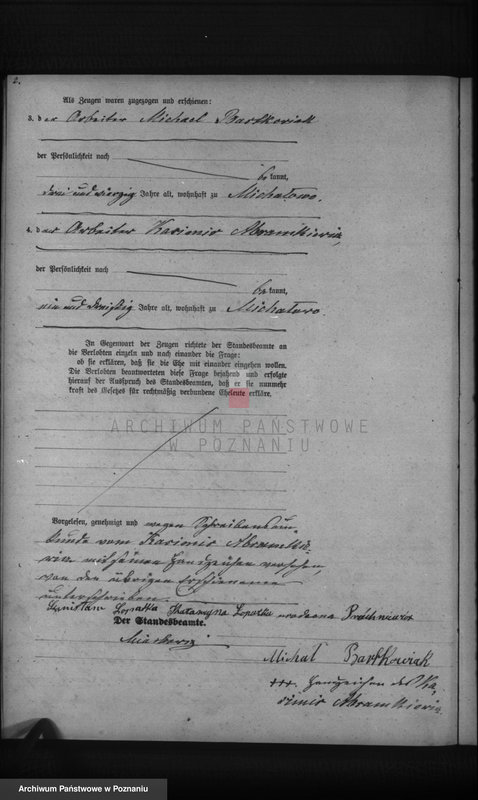 2.
Als Zeugen waren zugezogen und erschienen:
3. der Arbeiter Michael Bartkowiak
der Persönlichkeit nach
be kannt,
drei und vierzig Jahre alt, wohnhaft zu Michałowo.
4. der Arbeiter Kasimir Abramkiewicz,
der Persönlichkeit nach
be kannt,
ein und dreißig Jahre alt, wohnhaft zu Michałowo.
In Gegenwart der Zeugen richtete der Standesbeamte an
die Verlobten einzeln und nach einander die Frage:
ob sie erklären, daß sie die Ehe mit einander eingehen wollen.
Die Verlobten beantworteten diese Frage bejahend und erfolgte
hierauf der Ausspruch des Standesbeamten, daß er sie nunmehr
kraft des Gesetzes für rechtmäßig verbundene Eheleute erkläre.
ARCHIWUM PAŃSTWOWE
W POZNANIU
Vorgelesen, genehmigt und wegen Schreibensun-
kunde vom Kasimir Abramkie-
wicz mit seinen Handzeichen versehen,
von den übrigen Erschienenen
unterschrieben.
Stanisław Łopatka Katarzyna Łopatka
Der Standesbeamte.
Michał Bartkowiak
+++ Handzeichen des Ka-
simir Abramkiewicz
Archiwum Państwowe w Poznaniu